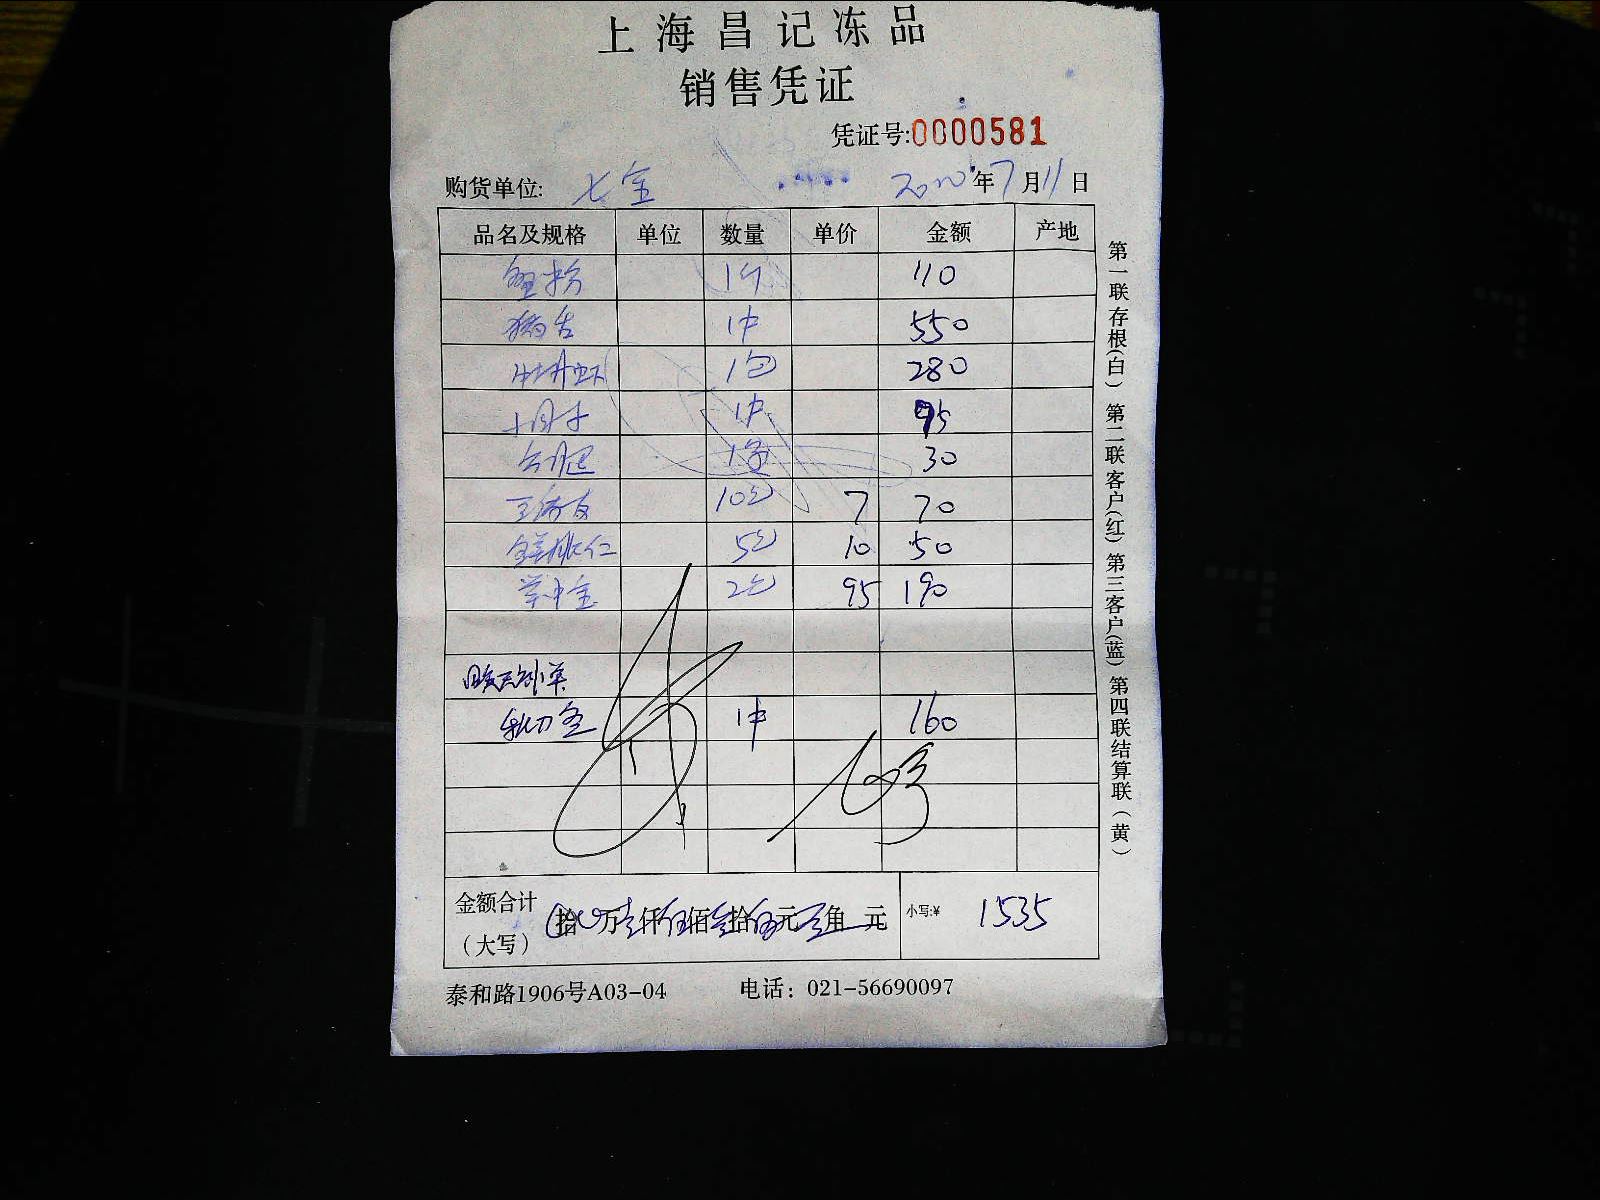 上海昌记冻品
销售凭证
凭证号:0000581
购货单位: 七宝 2010年7月11日
品名及规格 单位 数量 单价 金额 产地
1件 110
猪舌 1件 550
牡丹虾 1包 280
1件 95
30
10包 7 70
5包 10 50
2包 95 190
秋刀鱼 1件 160
金额合计 拾万壹仟伍佰叁拾伍元零角 元 小写:¥ 1535
(大写)
泰和路1906号A03-04 电话: 021-56690097
第一联存根(白) 第二联客户(红) 第三客户(蓝) 第四联结算联(黄)